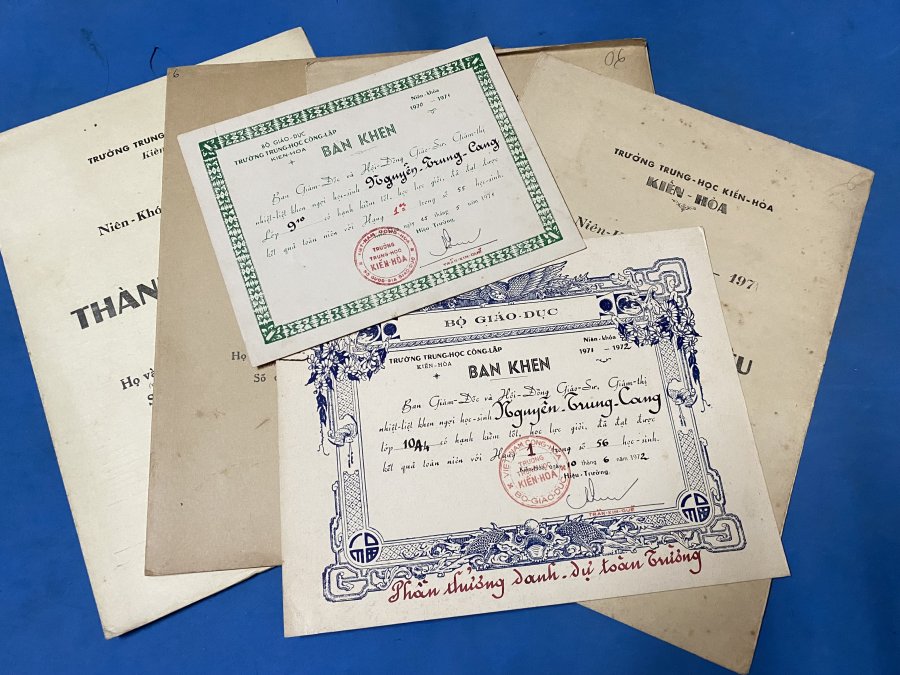 TRƯỜNG TRUNG-
Kiến
Niên-Khó
THÀN
Họ và
S
6
Họ
Số
Niên-khóa
1970 - 1971
BỘ GIÁO-DỤC
TRƯỜNG TRUNG-HỌC CÔNG-LẬP
KIẾN-HÒA
BAN KHEN
Ban Giám-Đốc và Hội-Đồng Giáo-Sư, Giám-thị
nhiệt-liệt khen ngợi học-sinh Nguyễn-Trung-Cang
Lớp 9/10 có hạnh kiểm tốt, học lực giỏi, đã đạt được
kết quả toàn niên với Hạng 1 trong số 55 học-sinh.
ngày 15 tháng 5 năm 1971
Hiệu Trưởng
VIỆT-NAM CỘNG-HÒA
TRƯỜNG
TRUNG-HỌC
KIẾN-HÒA
TRƯỜNG TRUNG-HỌC KIẾN-HÒA
KIẾN - HÒA
Niên-K
- 1971
ỂU
BỘ GIÁO-DỤC
Niên-khóa
1971 - 1972
TRƯỜNG TRUNG-HỌC CÔNG-LẬP
KIẾN-HÒA
BAN KHEN
Ban Giám-Đốc và Hội-Đồng Giáo-Sư, Giám-thị
nhiệt-liệt khen ngợi học-sinh Nguyễn-Trung-Cang
lớp 10A4 có hạnh kiểm tốt, học lực giỏi, đã đạt được
kết quả toàn niên với Hạng 1 trong số 56 học-sinh.
Kiến-Hòa, ngày 10 tháng 6 năm 1972
Hiệu-Trưởng,
VIỆT-NAM CỘNG-HÒA
TRƯỜNG
KIẾN-HÒA
BỘ-GIÁO-DỤC
Phần thưởng danh-dự toàn Trường